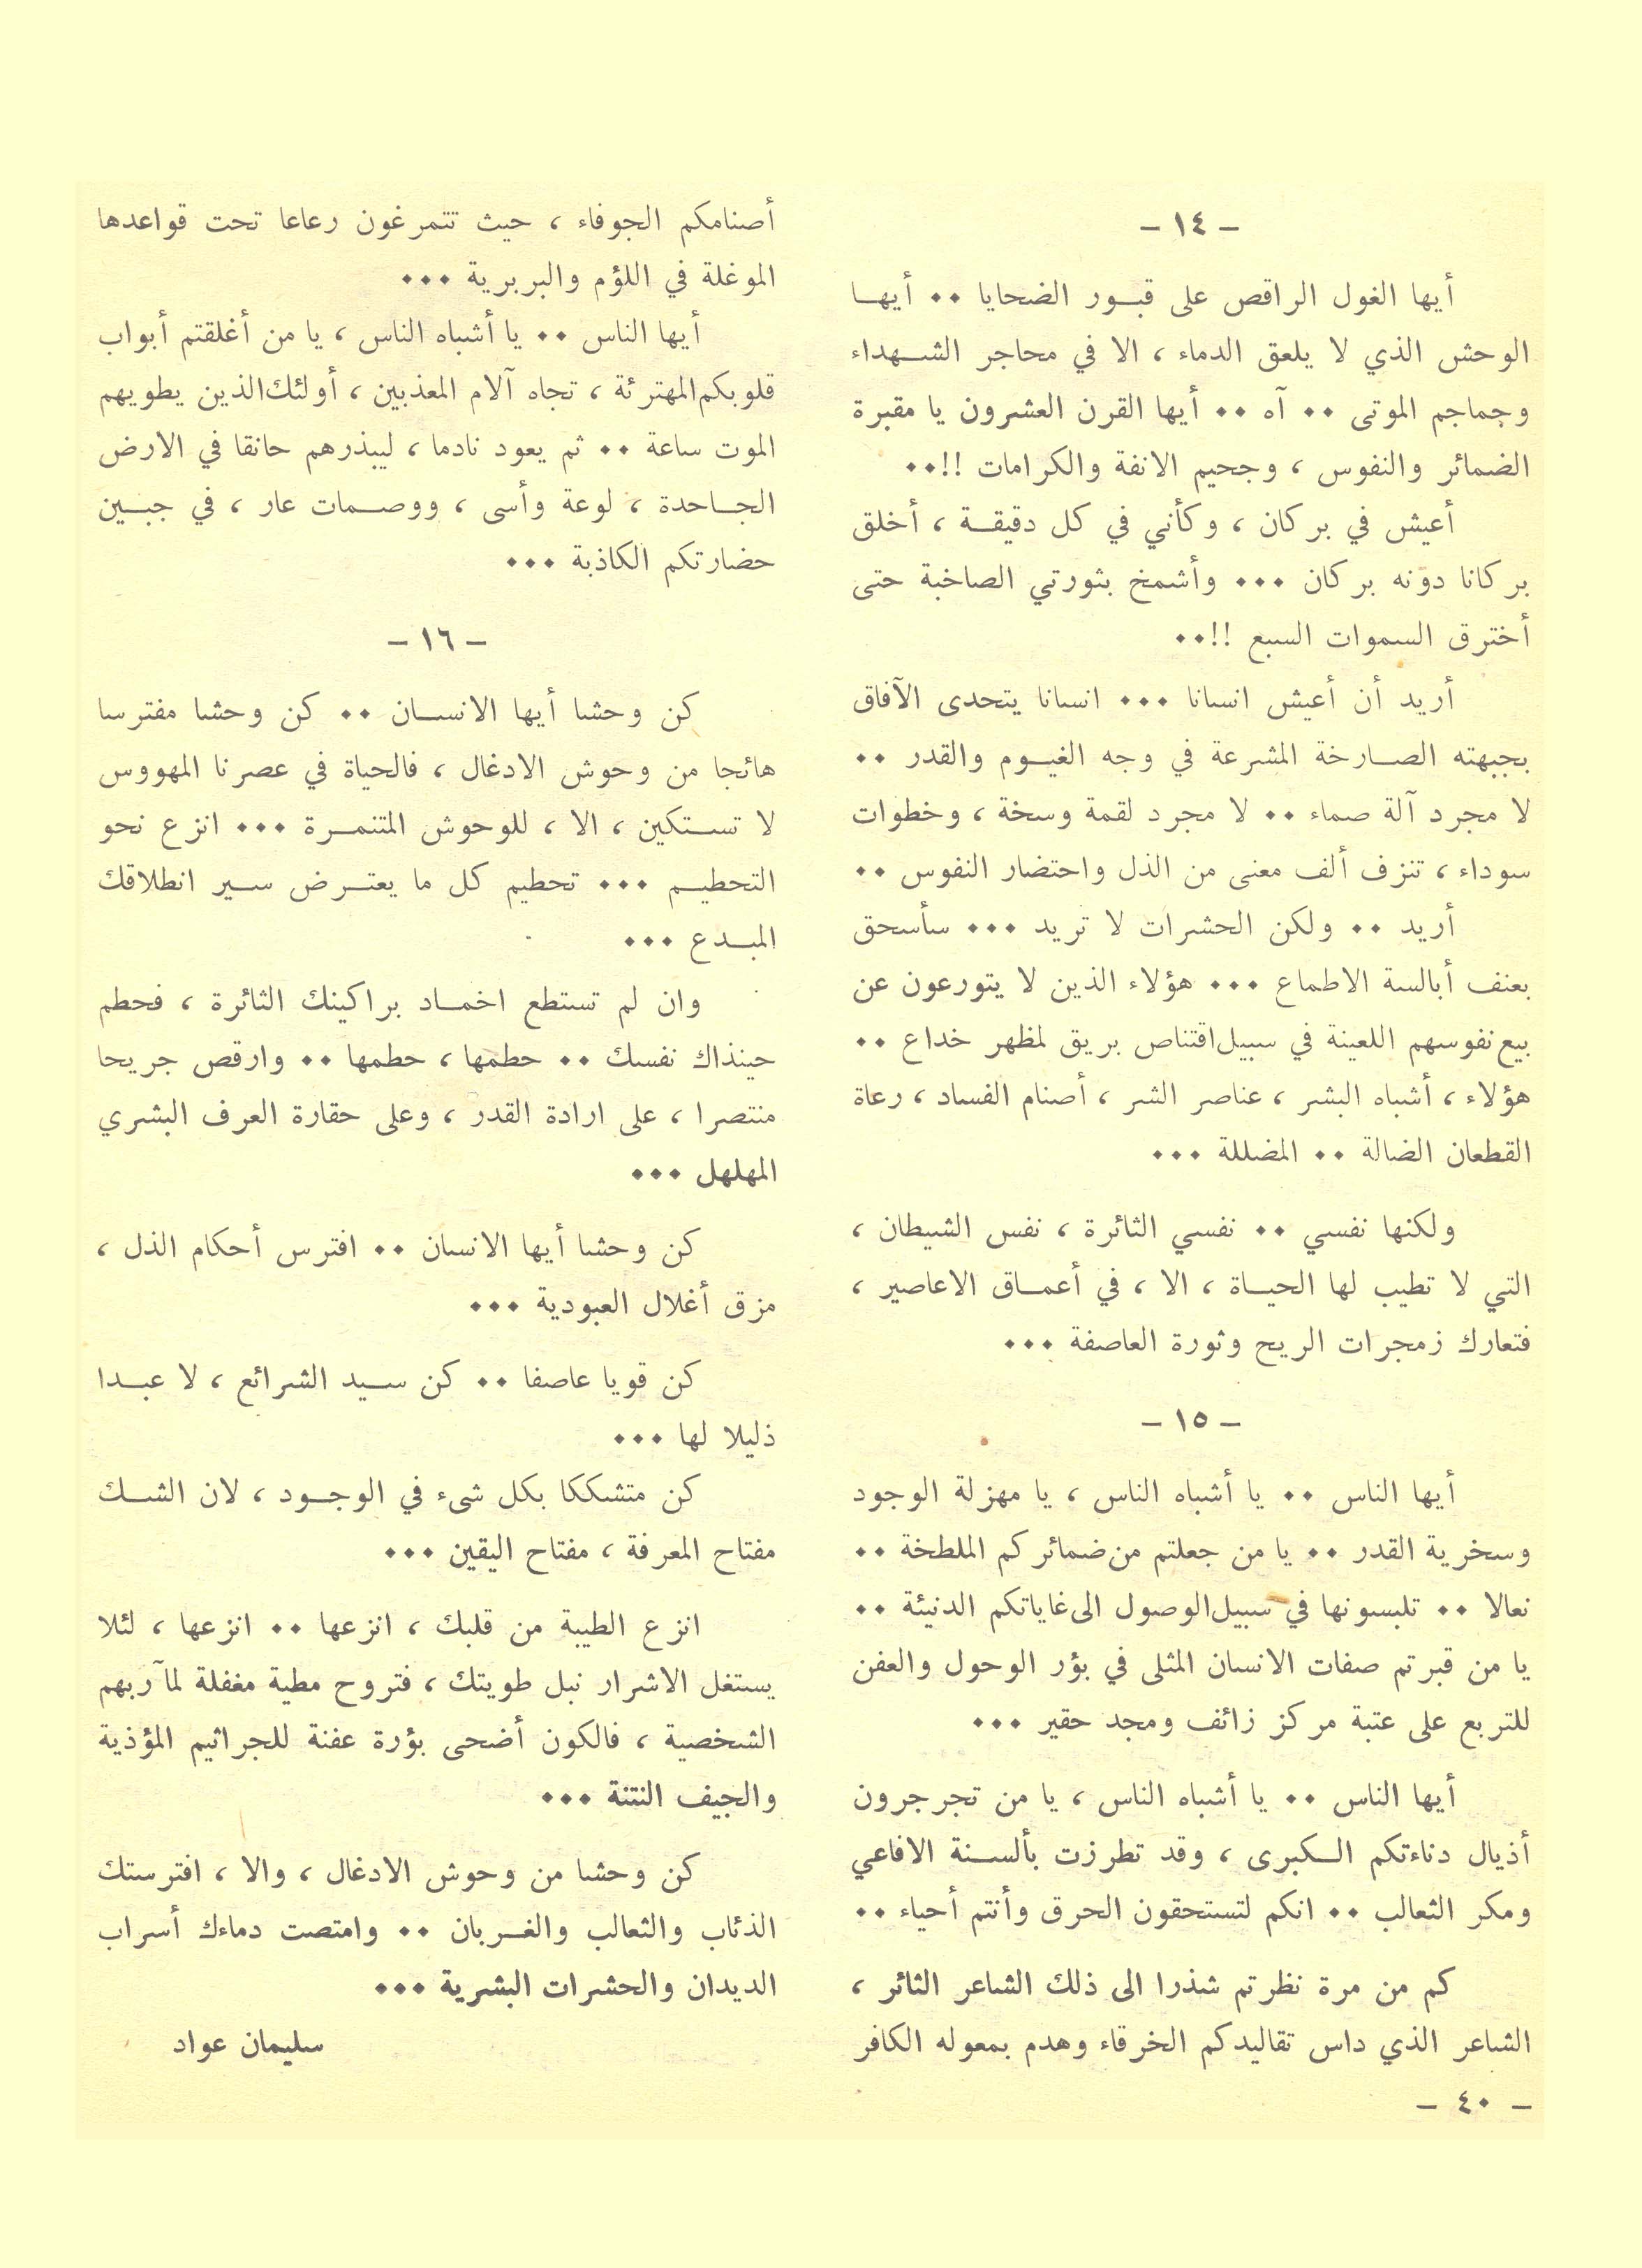 – ١٤ –
أيها الغول الراقص على قبــور الضحايا ٠٠ أيهــا
الوحش الذي لا يلعق الدماء ، الا في محاجر الشــهداء
وجماجم الموتى ٠٠ آه ٠٠ أيها القرن العشرون يا مقبرة
الضمائر والنفوس ، وجحيم الانفة والكرامات !!٠٠
أعيش في بركان ، وكأني في كل دقيقــة ، أخلق
بركانا دونه بركان ٠٠٠ وأشمخ بثورتي الصاخبة حتى
أخترق السموات السبع !!٠٠
أريد أن أعيش انسانا ٠٠٠ انسانا يتحدى الآفاق
بجبهته الصــارخة المشرعة في وجه الغيــوم والقدر ٠٠
لا مجرد آلة صماء ٠٠ لا مجرد لقمة وسخة ، وخطوات
سوداء ، تنزف ألف معنى من الذل واحتضار النفوس ٠٠
أريد ٠٠ ولكن الحشرات لا تريد ٠٠٠ سأسحق
بعنف أبالسة الاطماع ٠٠٠ هؤلاء الذين لا يتورعون عن
بيع نفوسهم اللعينة في سبيل اقتناص بريق لمظهر خداع ٠٠
هؤلاء ، أشباه البشر ، عناصر الشر ، أصنام الفساد ، رعاة
القطعان الضالة ٠٠ المضللة ٠٠٠
ولكنها نفسي ٠٠ نفسي الثائرة ، نفس الشيطان ،
التي لا تطيب لها الحيــاة ، الا ، في أعمــاق الاعاصير ،
فتعارك زمجرات الريح وثورة العاصفة ٠٠٠
– ١٥ –
أيها الناس ٠٠ يا أشباه الناس ، يا مهزلة الوجود
وسخرية القدر ٠٠ يا من جعلتم من ضمائركم الملطخة ٠٠
نعالا ٠٠ تلبسونها في سبيل الوصول الى غاياتكم الدنيئة ٠٠
يا من قبرتم صفات الانسان المثلى في بؤر الوحول والعفن
للتربع على عتبة مركز زائف ومجد حقير ٠٠٠
أيها الناس ٠٠ يا أشباه الناس ، يا من تجرجرون
أذيال دناءتكم الــكبرى ، وقد تطرزت بألســنة الافاعي
ومكر الثعالب ٠٠ انكم لتستحقون الحرق وأنتم أحياء ٠٠
كم من مرة نظرتم شذرا الى ذلك الشاعر الثائر ،
الشاعر الذي داس تقاليدكم الخرقاء وهدم بمعوله الكافر
– ٤٠ –
أصنامكم الجوفاء ، حيث تتمرغون رعاعا تحت قواعدها
الموغلة في اللؤم والبربرية ٠٠٠
أيها الناس ٠٠ يا أشباه الناس ، يا من أغلقتم أبواب
قلوبكم المهترئة ، تجاه آلام المعذبين ، أولئك الذين يطويهم
الموت ساعة ٠٠ ثم يعود نادما ، ليبذرهم حانقا في الارض
الجــاحدة ، لوعة وأسى ، ووصــمات عار ، في جبــين
حضارتكم الكاذبة ٠٠٠
– ١٦ –
كن وحشا أيها الانســان ٠٠ كن وحشا مفترسا
هائجا من وحوش الادغال ، فالحياة في عصرنا المهووس
لا تســتكين ، الا ، للوحوش المتنمــرة ٠٠٠ انزع نحو
التحطيــم ٠٠٠ تحطيم كل ما يعتــرض ســير انطلاقك
المبــدع ٠٠٠
وان لم تستطع اخمــاد براكينك الثائرة ، فحطم
حينذاك نفسك ٠٠ حطمها ، حطمها ٠٠ وارقص جريحا
منتصرا ، على ارادة القدر ، وعلى حقارة العرف البشري
المهلهل ٠٠٠
كن وحشا أيها الانسان ٠٠ افترس أحكام الذل ،
مزق أغلال العبودية ٠٠٠
كن قويا عاصفا ٠٠ كن ســيد الشرائع ، لا عبــدا
ذليلا لها ٠٠٠
كن متشككا بكل شىء في الوجــود ، لان الشــك
مفتاح المعرفة ، مفتاح اليقين ٠٠٠
انزع الطيبة من قلبك ، انزعها ٠٠ انزعها ، لئلا
يستغل الاشرار نبل طويتك ، فتروح مطية مغفلة لمآربهم
الشخصية ، فالكون أضحى بؤرة عفنة للجراثيم المؤذية
والجيف النتنة ٠٠٠
كن وحشا من وحوش الادغال ، والا ، افترستك
الذئاب والثعالب والغــربان ٠٠ وامتصت دماءك أسراب
الديدان والحشرات البشرية ٠٠٠
سليمان عواد